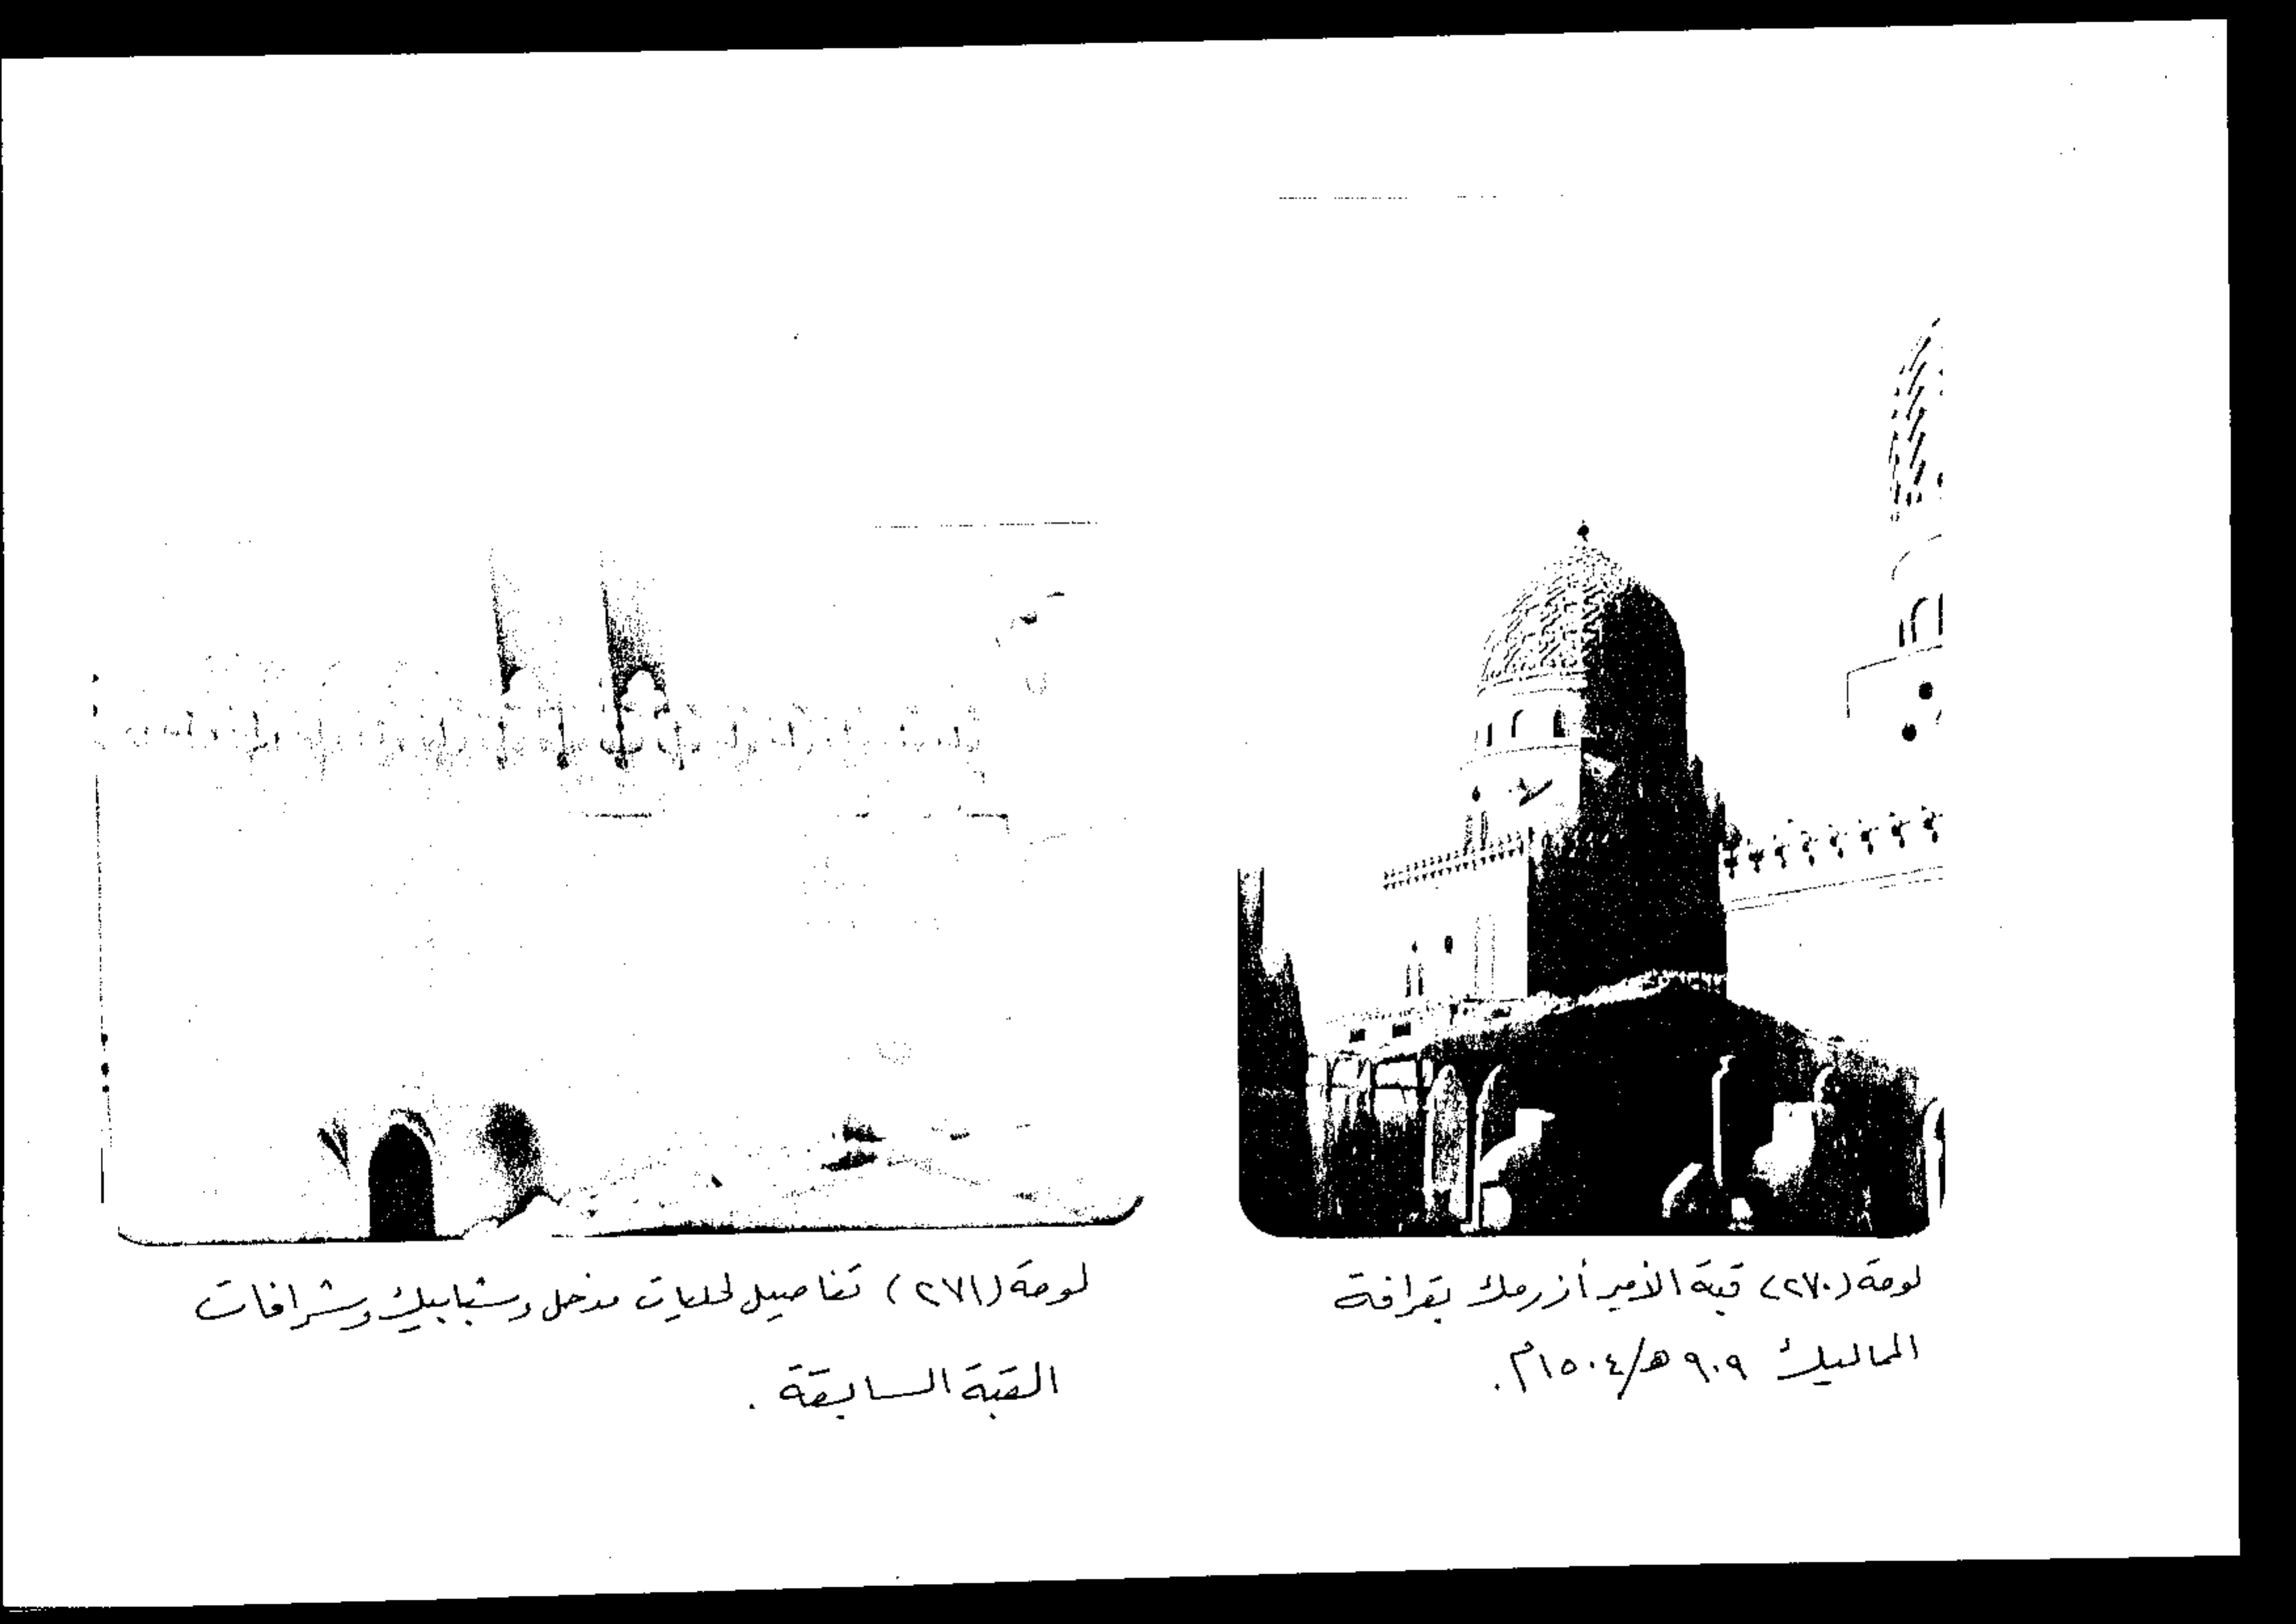 لوحة (٢٧٠) قبة الأمير أزرمك بقرافة
المماليك ٩٠٩ هـ/١٥٠٤م.
لوحة (٢٧١) تفاصيل لحليات مدخل وشبابيك وشرافات
القبة السابقة .